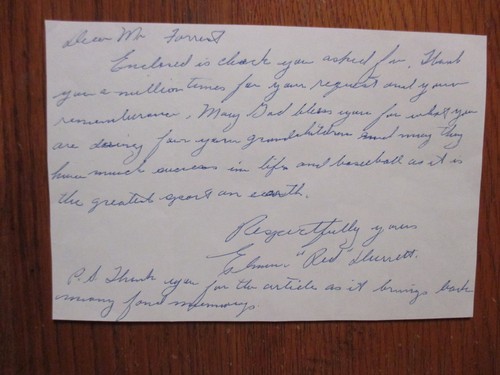 Dear Mr Forrest
Enclosed is check you asked for. Thank
you a million times for your request and your
rememberance. May God bless you for what you
are doing for your grandchildren and may they
have much success in life and baseball as it is
the greatest sport on earth.
Respectfully yours
Elmer "Red" Durrett.
P.S Thank you for the article as it brings back
many fond memorys.